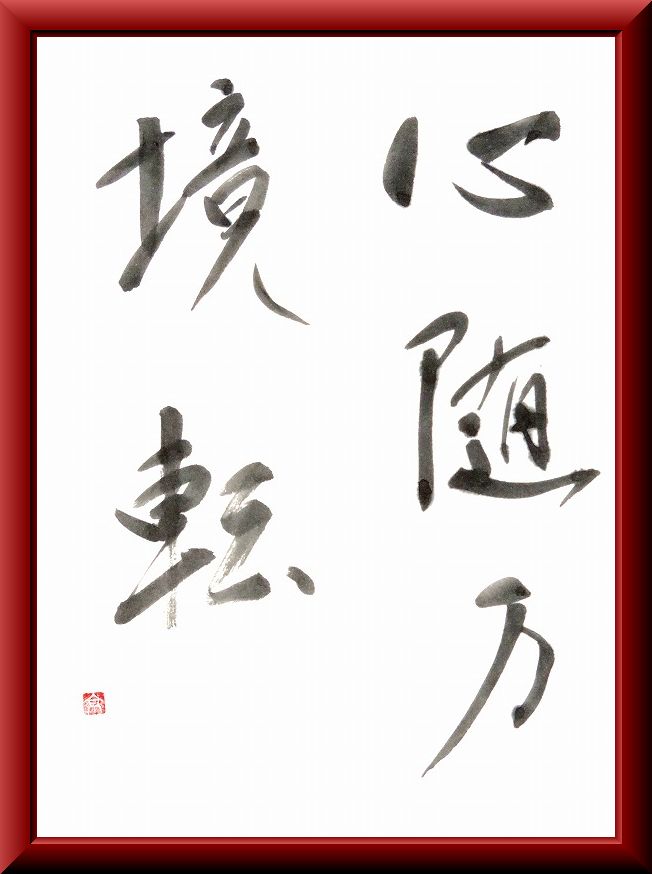 心随万
境転